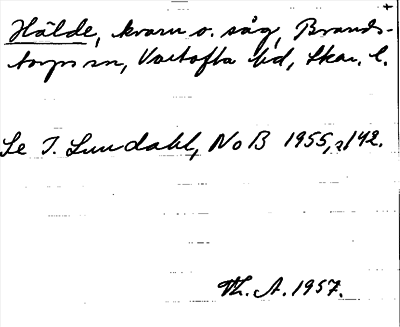 Hälde, kvarn o. såg, Brands-
torps sn, Vartofta hd, Skar. l.
Se I. Lundahl, NoB 1955, s. 142.
Th. A. 1957.